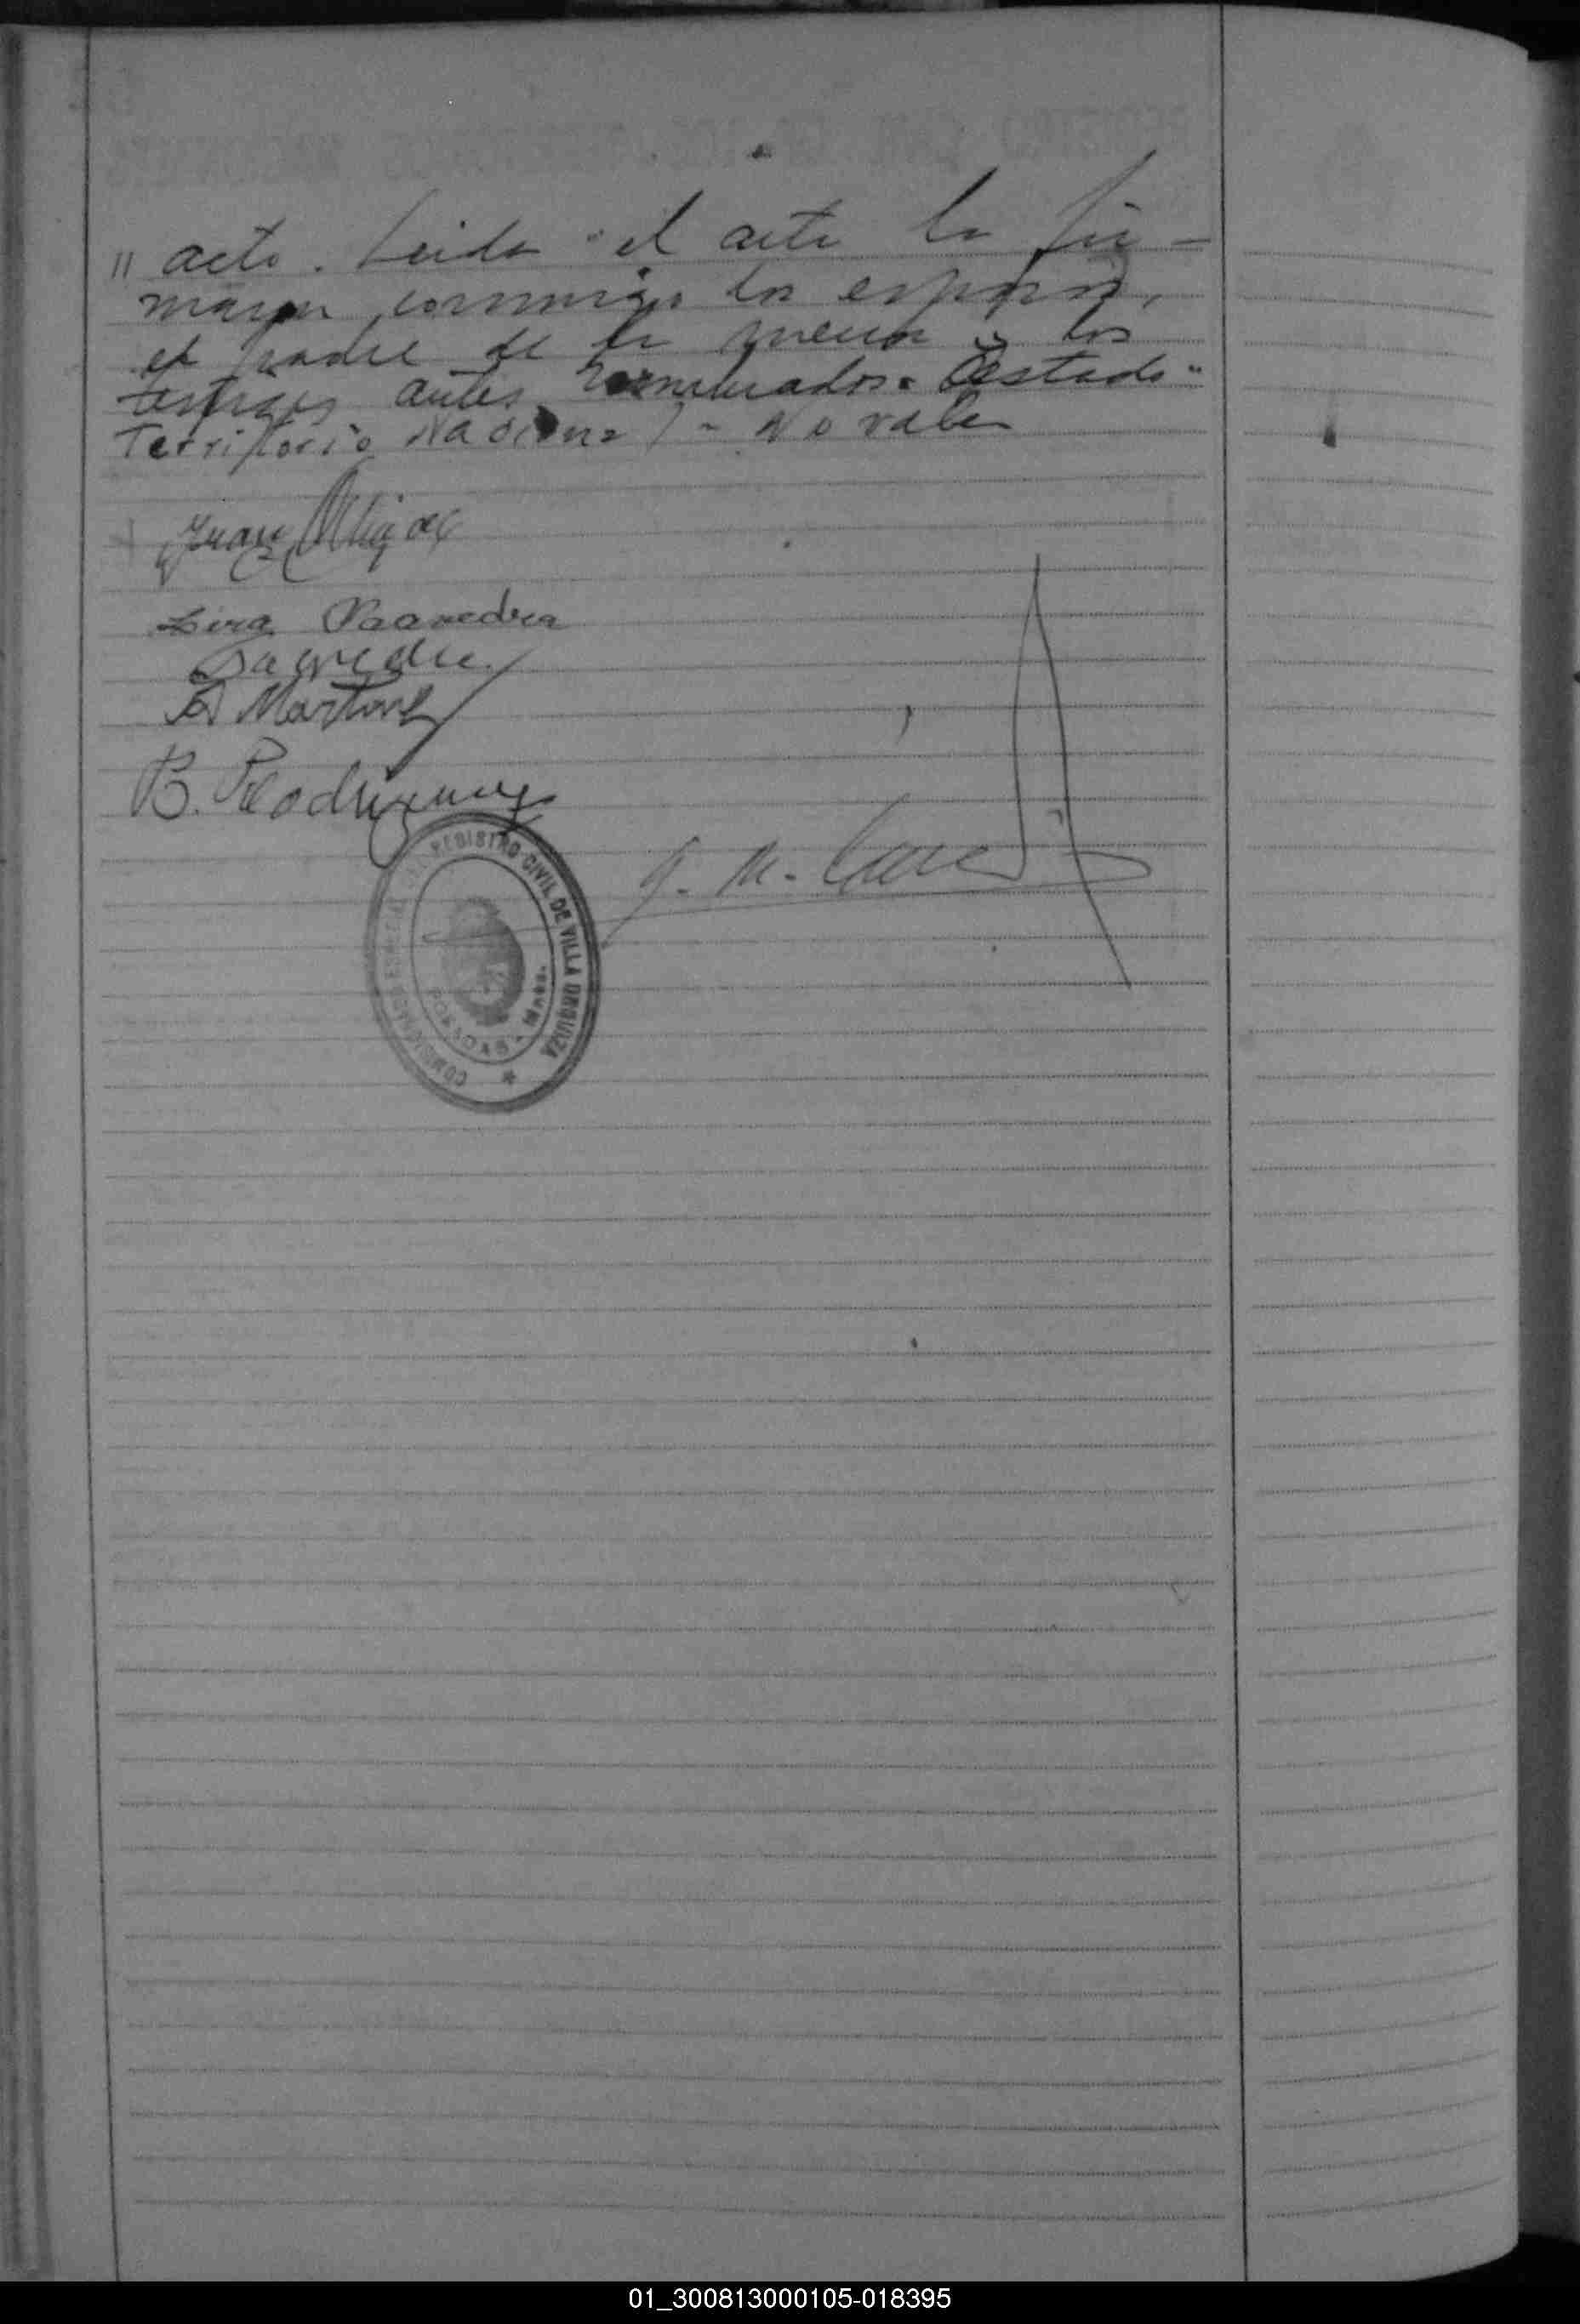 " acto. Leida el acta la fir-
maron conmigo los esposos,
el padre de la menor y los
testigos antes nombrados. Testado-
Territorio Nacional - No vale
Juan
Saavedra
Saavedra
A Martinez
B. Rodriguez
G. M.
REGISTRO CIVIL DE VILLA URQUIZA
POSADAS - Mnes.
01_300813000105-018395